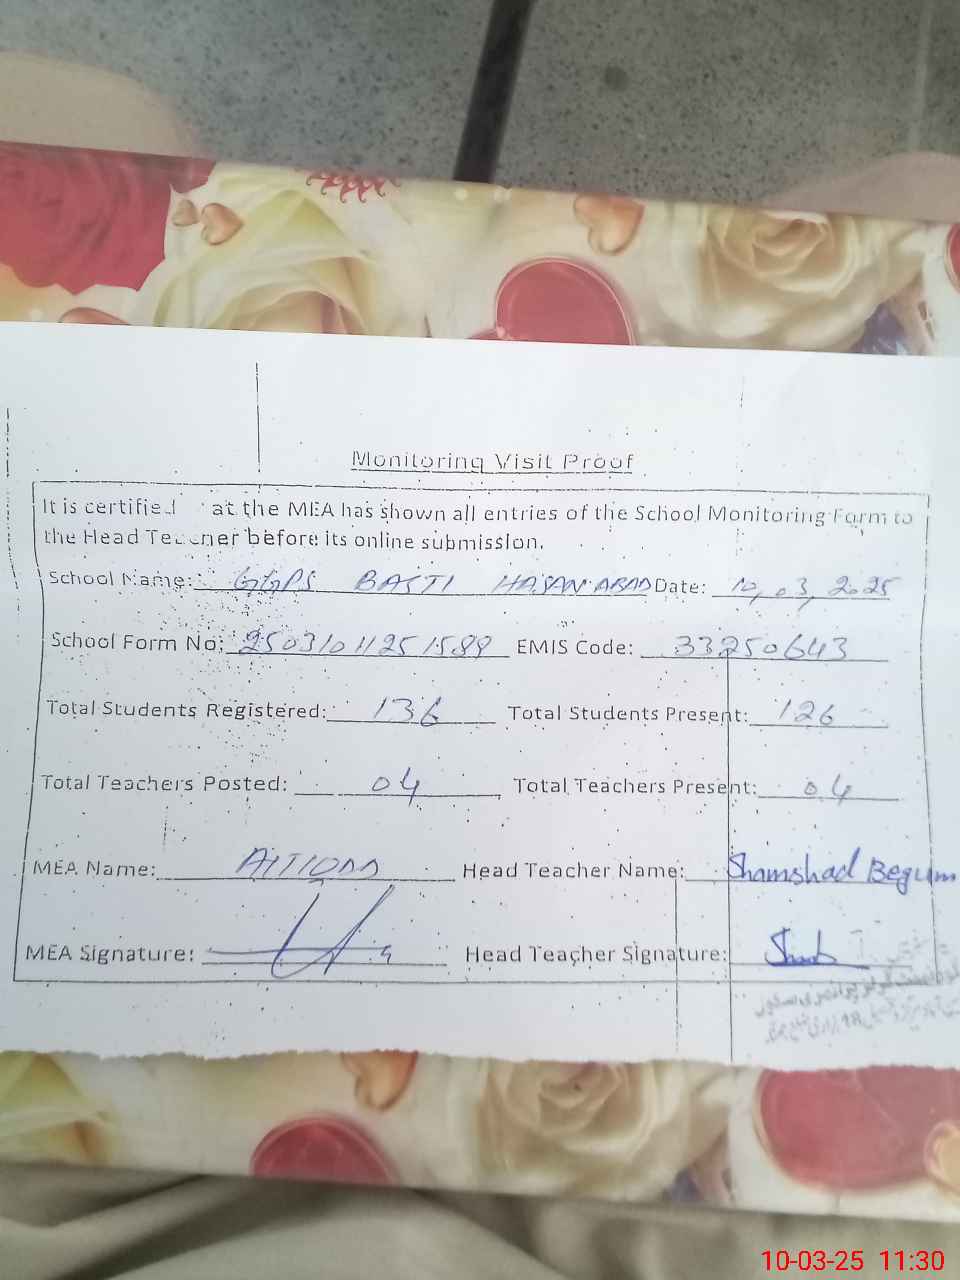 Monitoring Visit Proof
It is certified at the MEA has shown all entries of the School Monitoring Form to
the Head Teacher before its online submission.
School Name: GGPS BASTI HASAN ABAD Date: 10,03,2025
School Form No: 25031011251589 EMIS Code: 33250643
Total Students Registered: 136 Total Students Present: 126
Total Teachers Posted: 04 Total Teachers Present: 04
MEA Name: Head Teacher Name: Shamshad Begum
MEA Signature: Head Teacher Signature: Shamshad
10-03-25 11:30